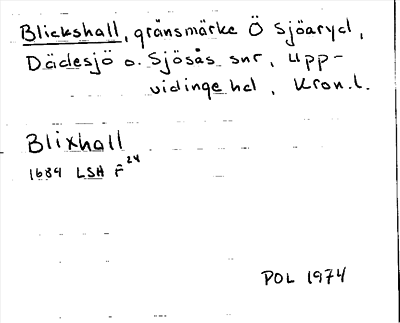 Blickshall, gränsmärke Ö Sjöaryd,
Dädesjö o. Sjösås snr, Upp-
vidinge hd, Kron.l.
Blixhall
1684 LSH F 24
POL 1974